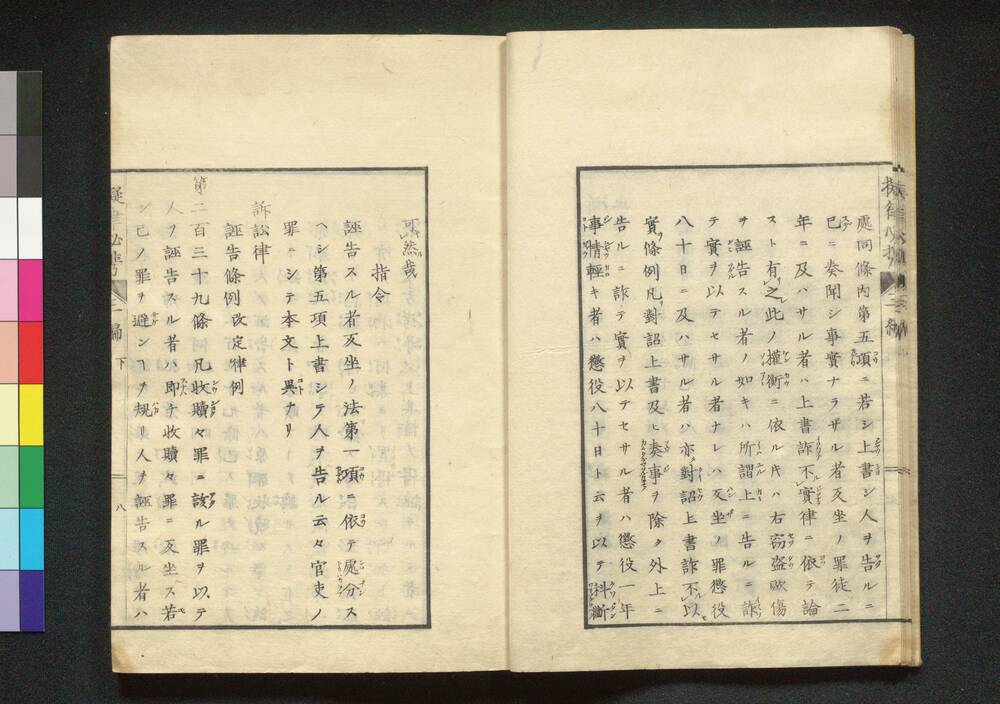 處同條內第五項ニ若シ上書シ人ヲ告ルニ
已ニ奏聞シ事實ナラサル者反坐ノ罪徒二
年ニ及ハサル者ハ上書詐不實律ニ依テ論
スト有之此ノ權衡ニ依ル片ハ右窃盜毆傷
ヲ誣告スル者ノ如キハ所謂上ニ告ルニ詐
テ實ヲ以テセサル者ナレハ反坐ノ罪懲役
八十日ニ及ハサル者ハ亦對詔上書詐不以
實條例凡對詔上書及ヒ奏事ヲ除ク外上ニ
告ルニ詐テ實ヲ以テセサル者ハ懲役一年
事情輕キ者ハ懲役八十日ト云ヲ以テ科斷
可然哉
指令
誣告スル者反坐ノ法第一項ニ依テ處分ス
ヘシ第五項上書シテ人ヲ告ル云々官吏ノ
罪ニシテ本文ト異ナリ
訴訟律
誣告條例 改定律例
第二百三十九條 凡收贖々罪ニ該ル罪ヲ以テ
人ヲ誣告スル者ハ即チ收贖々罪ニ反坐ス若
シ己ノ罪ヲ避ンヿヲ規リ人ヲ誣告スル者ハ
下
八